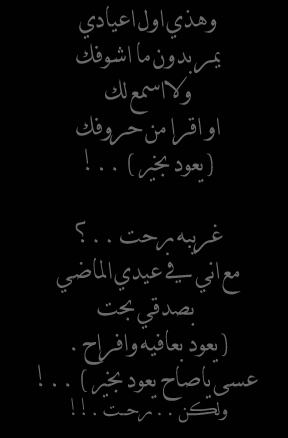 وهذي اول اعيادي
يمر بدون ما اشوفك
ولا اسمع لك
او اقرا من حروفك
( يعود بخير ) . . . !
غريبه برحت . . . ؟
مع اني في عيدي الماضي
بصدقي بحت
( يعود بعافيه وافراح .
عسى ياصاح يعود بخير ) . . . !
ولكن . . . رحت . . ! !